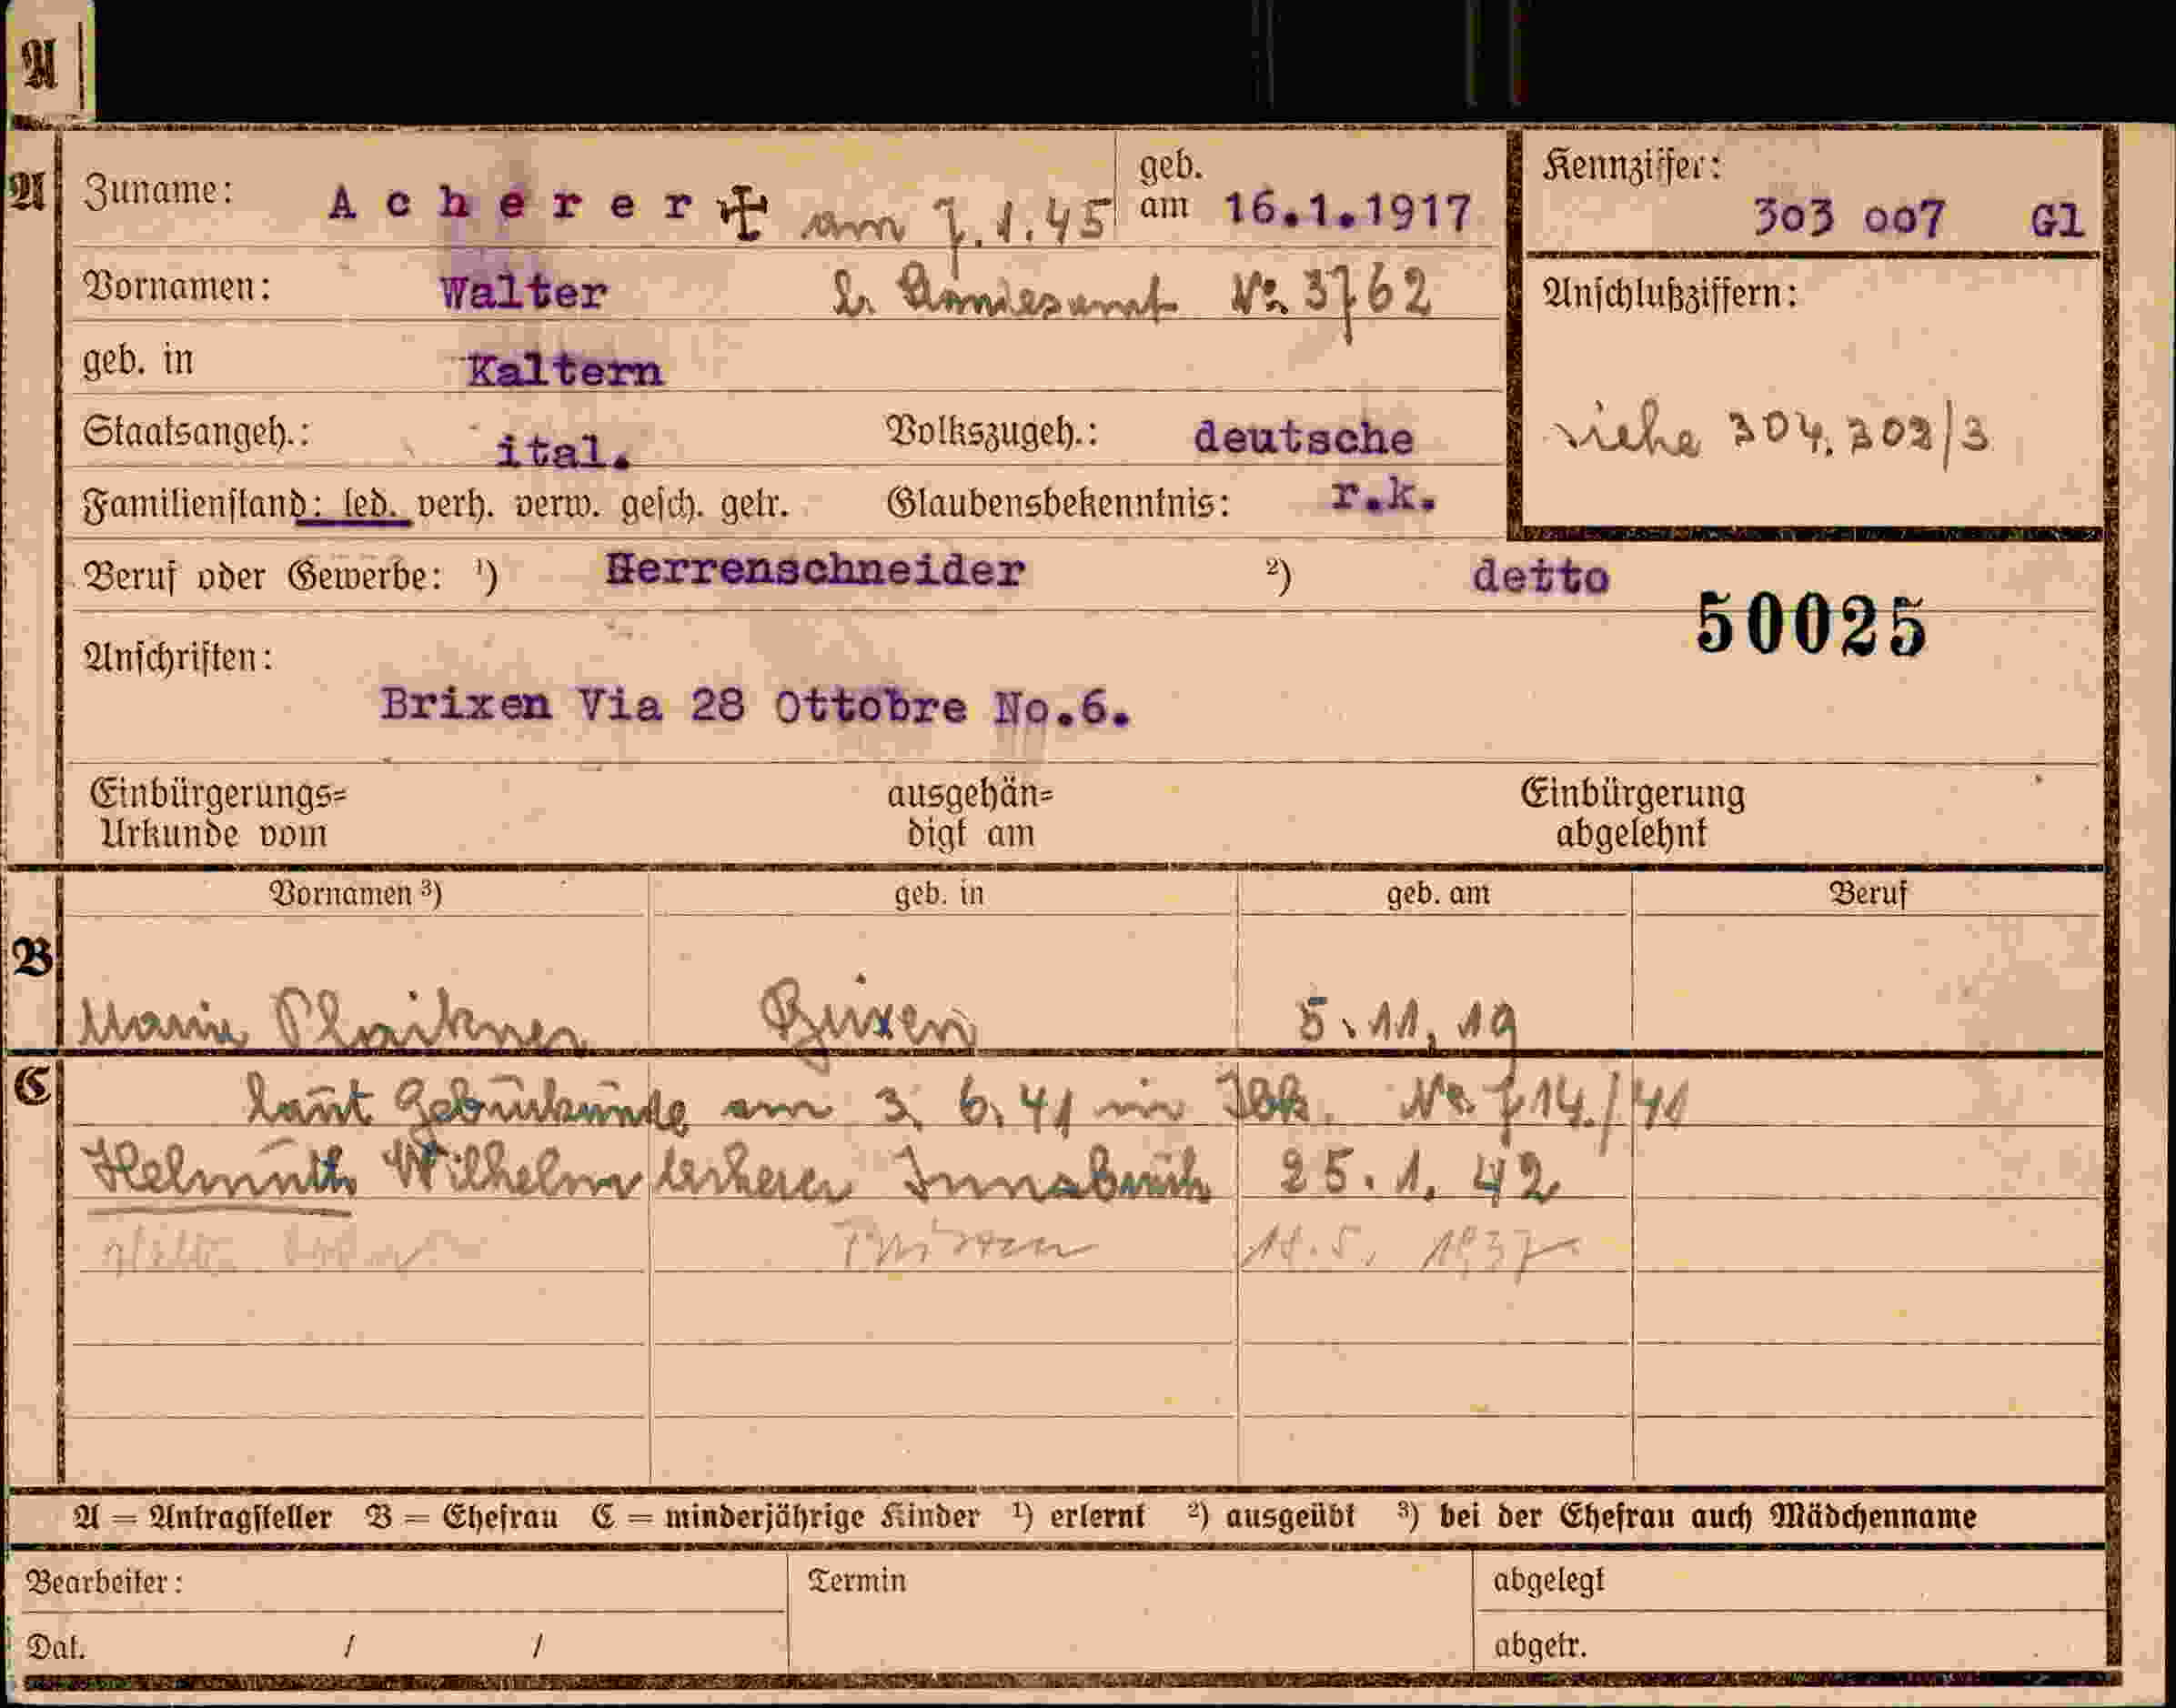 A
A Zuname: Acherer ✠ am 7.1.45 geb. am 16.1.1917
Kennziffer: 303 007 Gl
Vornamen: Walter No. 3762
Anschlußziffern:
geb. in Kaltern
siehe 304.302/3
Staatsangeh.: ital. Volkszugeh.: deutsche
Familienstand: led. verh. verw. gesch. getr. Glaubensbekenntnis: r.k.
Beruf oder Gewerbe: ¹) Herrenschneider ²) detto
50025
Anschriften:
Brixen Via 28 Ottobre No.6.
Einbürgerungs= ausgehän= Einbürgerung
Urkunde vom digt am abgelehnt
Vornamen ³) geb. in geb. am Beruf
B
Maria Plaikner Brixen 5.11.19
C
laut am 3.6.41 in Ibk. No. 714./41
Helmuth Wilhelm Acherer Innsbruck 25.1.42
Brixen 1937
A = Antragsteller B = Ehefrau C = minderjährige Kinder ¹) erlernt ²) ausgeübt ³) bei der Ehefrau auch Mädchenname
Bearbeiter: Termin abgelegt
Dat. / / abgetr.